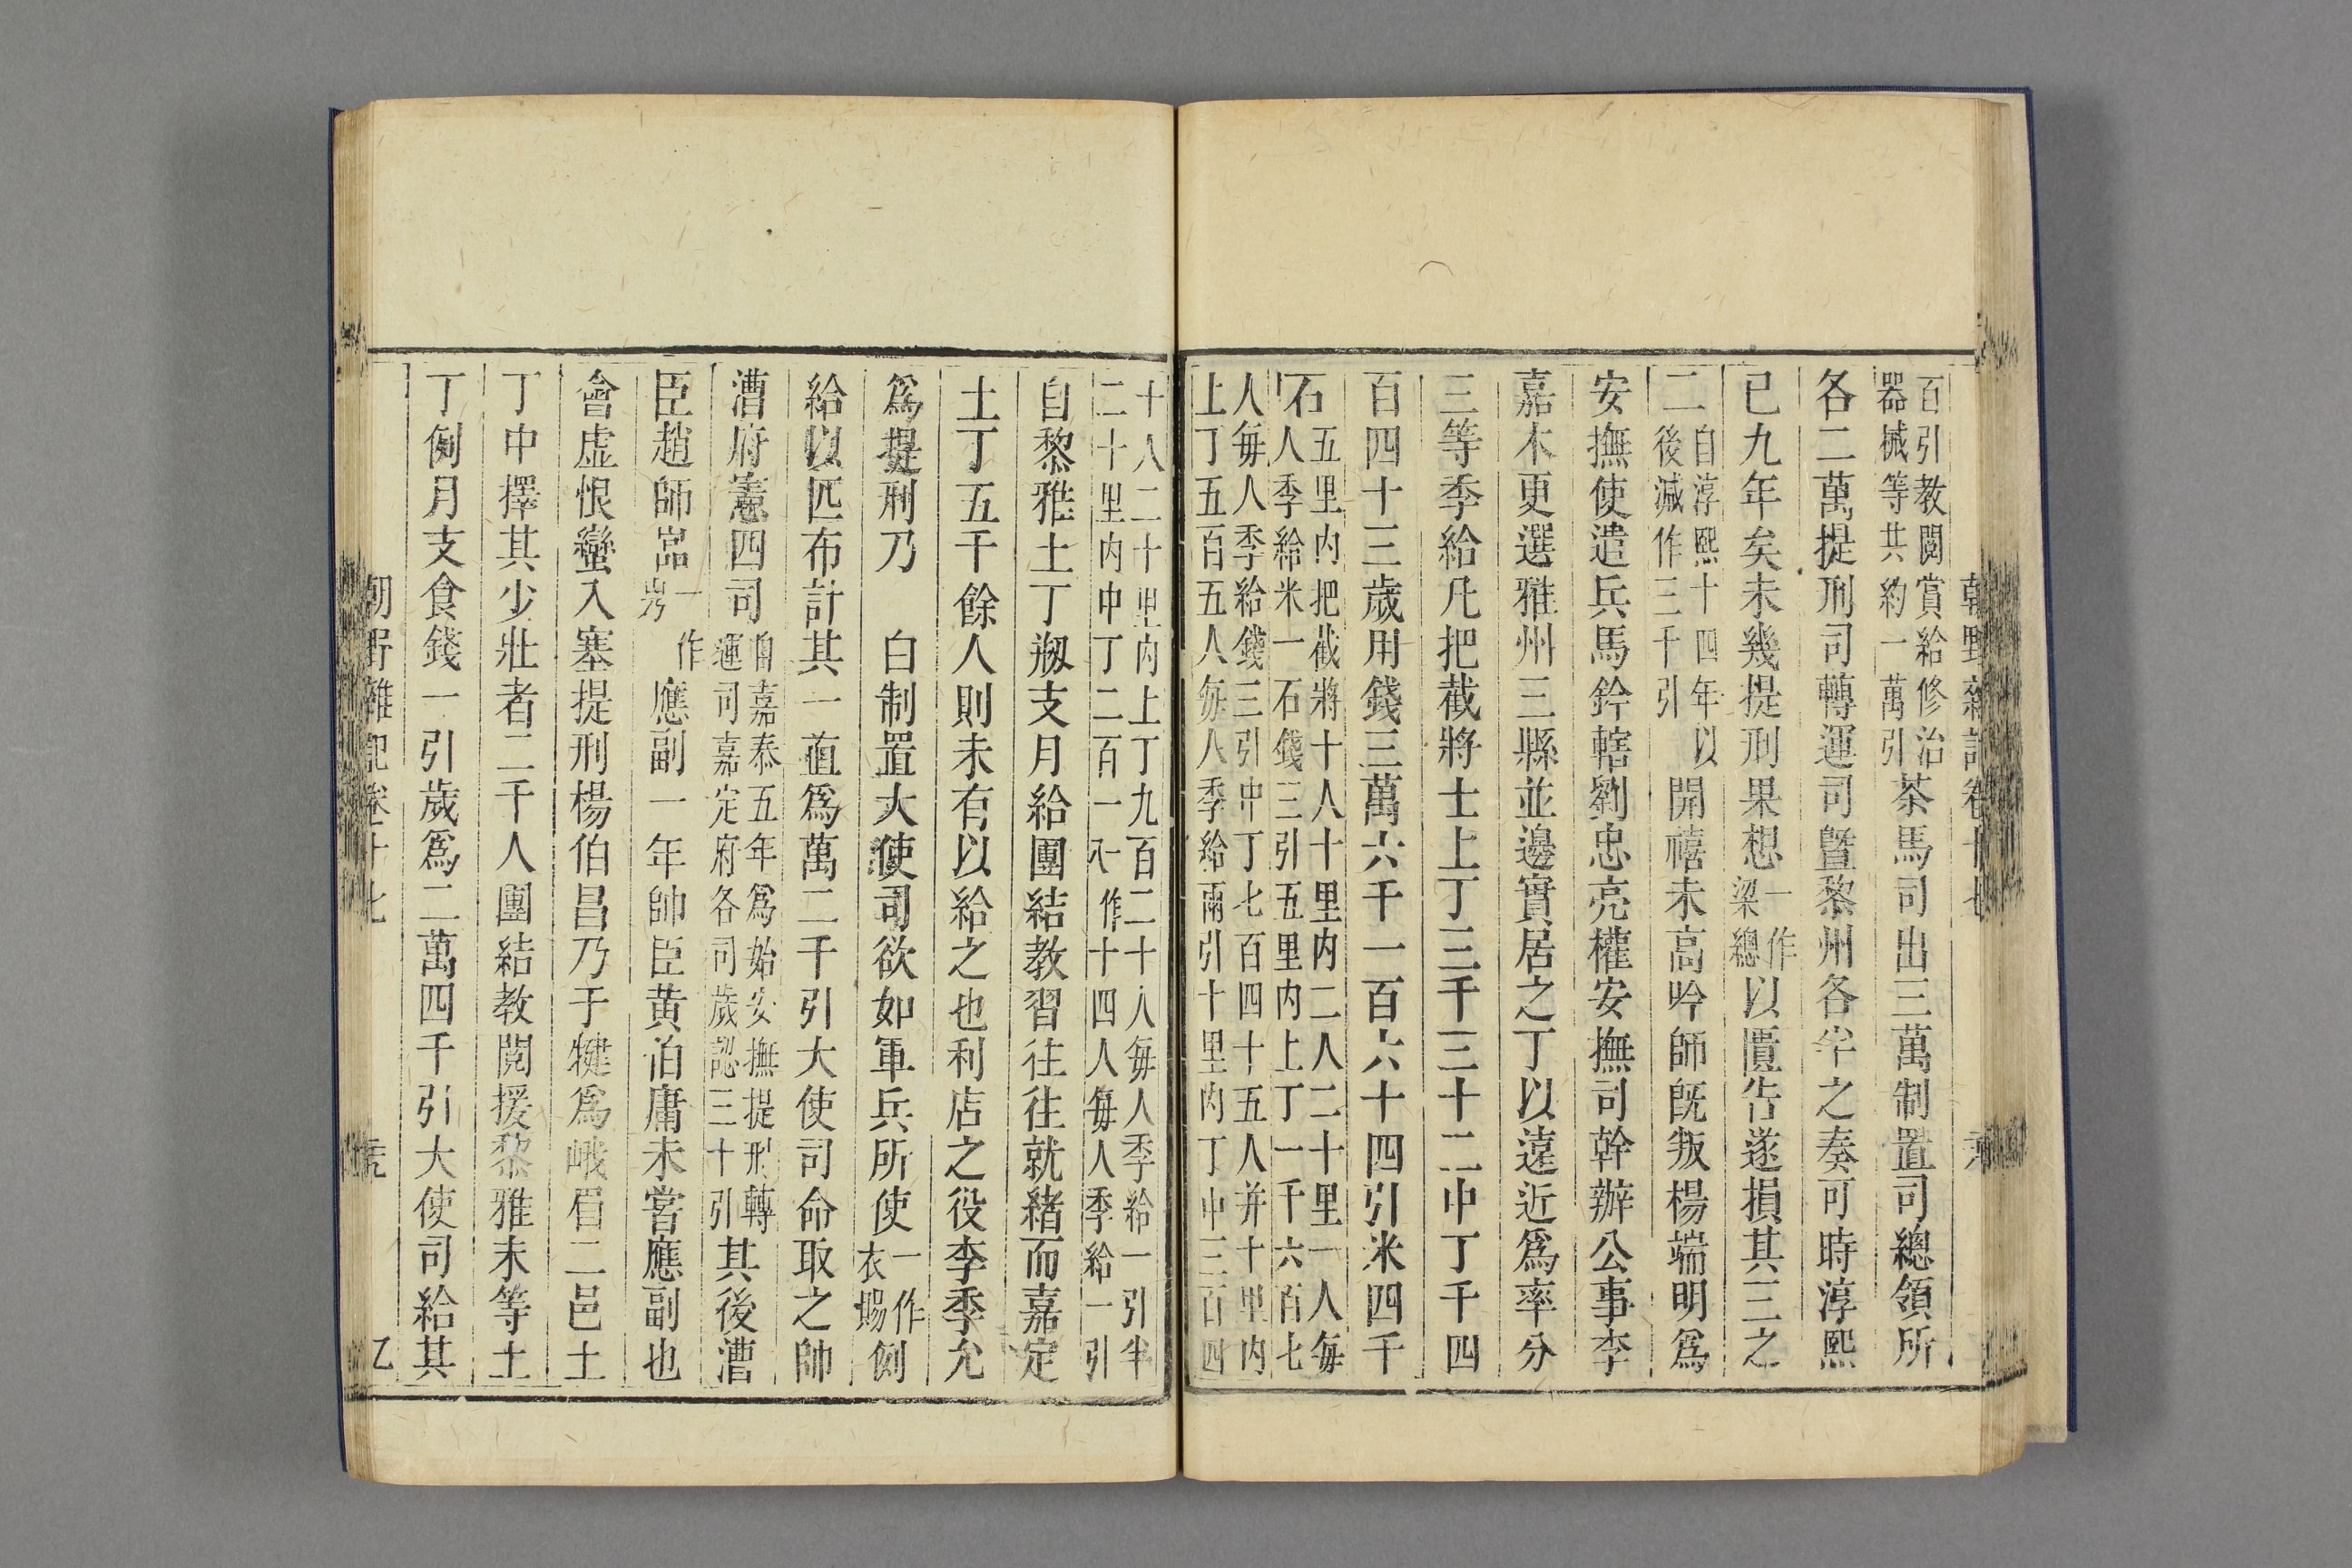 百引教閱賞給修治
器械等共約一萬引茶馬司出三萬制置司總領所
各二萬提刑司轉運司曁黎州各半之奏可時淳熙
已九年矣未幾提刑果想一作
梁總以匱告遂損其三之
二自淳熙十四年以
後減作三千引開禧未高吟師旣叛楊端明爲
安撫使遣兵馬鈐轄劉忠亮權安撫司幹辦公事李
嘉木更選雅州三縣並邊實居之丁以遠近爲率分
三等季給凡把截將士上丁三千三十二中丁千四
百四十三歲用錢三萬六千一百六十四引米四千
石五里内把截將十人十里内二人二十里一人每
人季給米一石錢三引五里内上丁一千六百七
人每人季給錢三引中丁七百四十五人并十里内
上丁五百五人每人季給兩引十里内丁中三百四
十八二十里内上丁九百二十人每人季給一引半
二十里内中丁二百一八一作十四人每人季給一引
自黎雅土丁剏支月給團結教習往往就緒而嘉定
土丁五千餘人則未有以給之也利店之役李季允
爲提刑乃 白制置大使司欲如軍兵所使一作
衣賜例
給以匹布計其一直爲萬二千引大使司命取之帥
漕府憲四司自嘉泰五年爲始安撫提刑轉
運司嘉定府各司歲認三十引其後漕
臣趙師嵓一作
勞應副一年帥臣黄伯庸未嘗應副也
會虚恨蠻入塞提刑楊伯昌乃于犍爲峨眉二邑土
丁中擇其少壯者二千人團結教閱援黎雅未等土
丁例月支食錢一引歲爲二萬四千引大使司給其
朝野雜記卷十七 乙